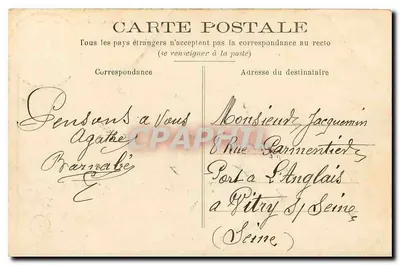 CARTE POSTALE
Tous les pays étrangers n'acceptent pas la correspondance au recto
(se renseigner à la poste)
Correspondance
Adresse du destinataire
Pensons a Vous
Agathe
Barnabé
Monsieur Jacquemin
8 Rue Parmentier
Port a L'Anglais
a Vitry s/ Seine
(Seine)
CPAPHIL